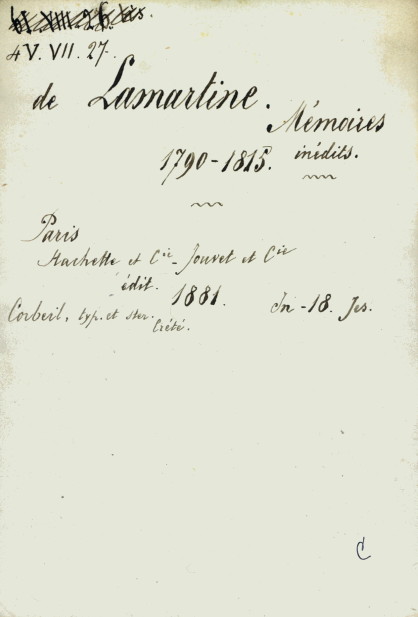 4 V. VII. 27.
de Lamartine.
Mémoires
1790-1815. inédits.
Paris
Hachette et Cie - Jouvet et Cie
édit.
1881. In-18. Jes.
Corbeil, typ. et ster.
Crété.
C